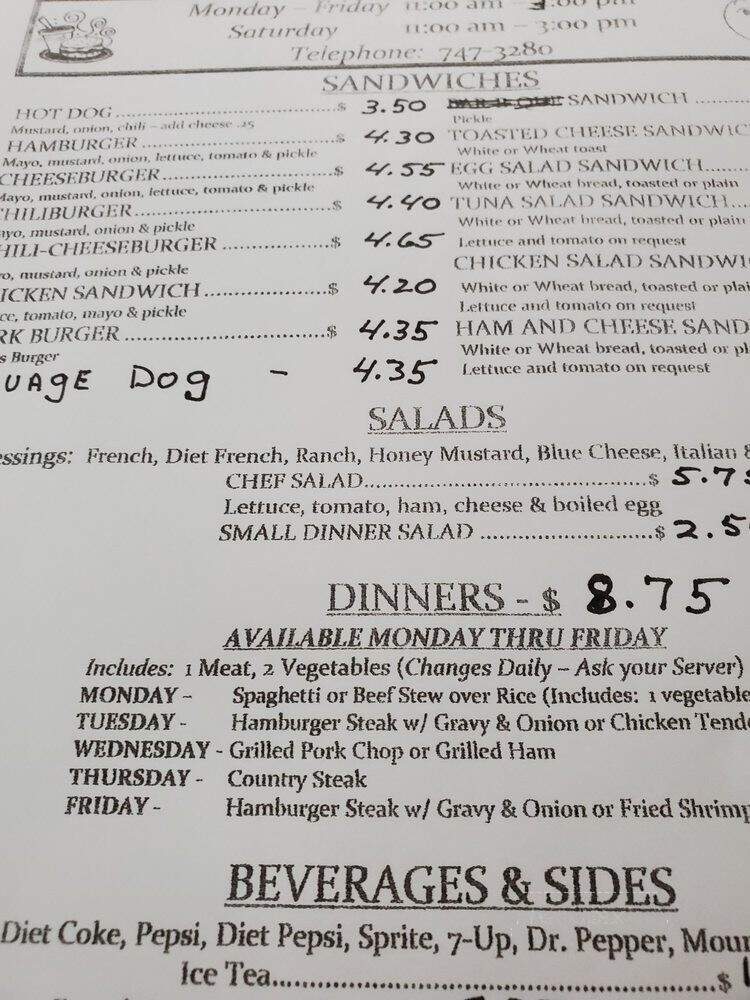 Monday – Friday 11:00 am – 3:00 pm
Saturday 11:00 am – 3:00 pm
Telephone: 747-3280
SANDWICHES
HOT DOG $ 3.50
Mustard, onion, chili – add cheese .25
HAMBURGER $ 4.30
Mayo, mustard, onion, lettuce, tomato & pickle
CHEESEBURGER $ 4.55
Mayo, mustard, onion, lettuce, tomato & pickle
CHILIBURGER $ 4.40
ayo, mustard, onion & pickle
HILI-CHEESEBURGER $ 4.65
yo, mustard, onion & pickle
ICKEN SANDWICH $ 4.20
ce, tomato, mayo & pickle
RK BURGER $ 4.35
s Burger
UAgE Dog - 4.35
SANDWICH
Pickle
TOASTED CHEESE SANDWIC
White or Wheat toast
EGG SALAD SANDWICH
White or Wheat bread, toasted or plain
TUNA SALAD SANDWICH
White or Wheat bread, toasted or plain
Lettuce and tomato on request
CHICKEN SALAD SANDWI
White or Wheat bread, toasted or plai
Lettuce and tomato on request
HAM AND CHEESE SAND
White or Wheat bread, toasted or pl
Lettuce and tomato on request
SALADS
essings: French, Diet French, Ranch, Honey Mustard, Blue Cheese, Italian &
CHEF SALAD $ 5.75
Lettuce, tomato, ham, cheese & boiled egg
SMALL DINNER SALAD $ 2.5
DINNERS - $ 8.75
AVAILABLE MONDAY THRU FRIDAY
Includes: 1 Meat, 2 Vegetables (Changes Daily – Ask your Server)
MONDAY – Spaghetti or Beef Stew over Rice (Includes: 1 vegetable
TUESDAY - Hamburger Steak w/ Gravy & Onion or Chicken Tende
WEDNESDAY - Grilled Pork Chop or Grilled Ham
THURSDAY - Country Steak
FRIDAY - Hamburger Steak w/ Gravy & Onion or Fried Shrimp
BEVERAGES & SIDES
Diet Coke, Pepsi, Diet Pepsi, Sprite, 7-Up, Dr. Pepper, Moun
Ice Tea $